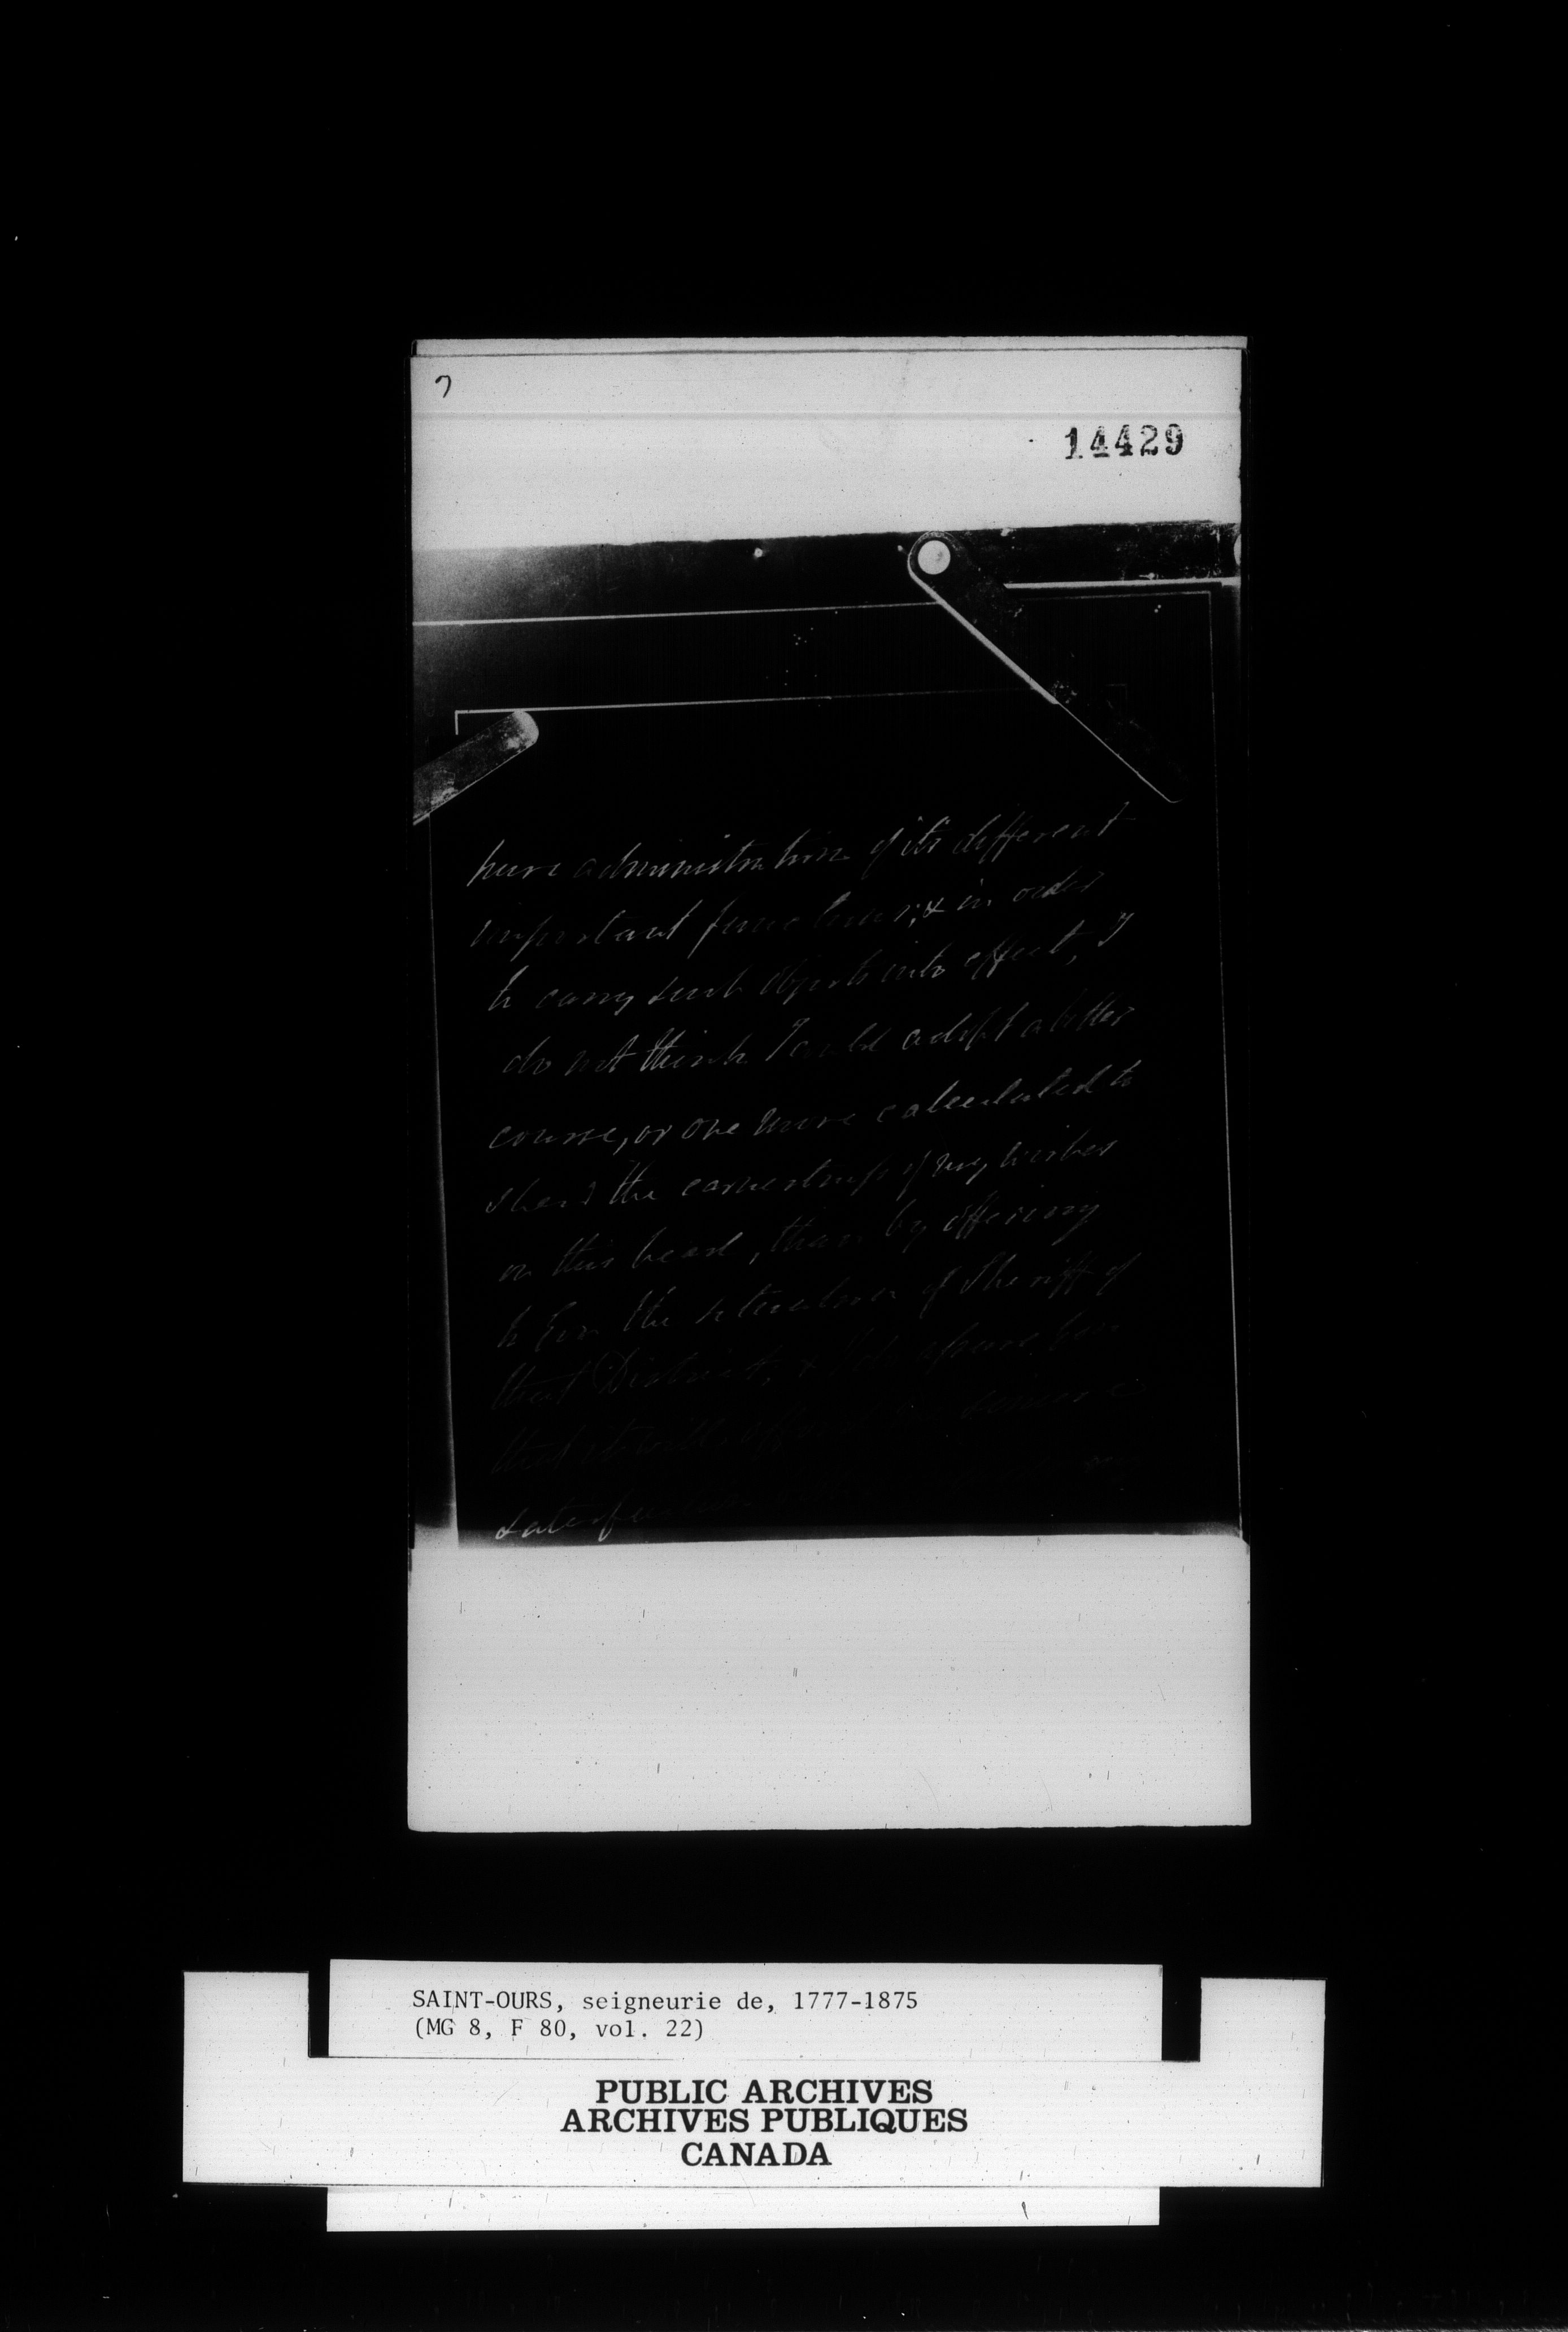 7
14429
pure administration of its different
important functions; & in order
to carry such objects into effect, I
do not think I could adopt a better
course, or one more calculated to
shew the earnestness of my wishes
on this head, than by offering
to you the situation of Sheriff of
that District, & I do assure you
that it will afford me sincere
satisfaction
SAINT-OURS, seigneurie de, 1777-1875
(MG 8, F 80, vol. 22)
PUBLIC ARCHIVES
ARCHIVES PUBLIQUES
CANADA